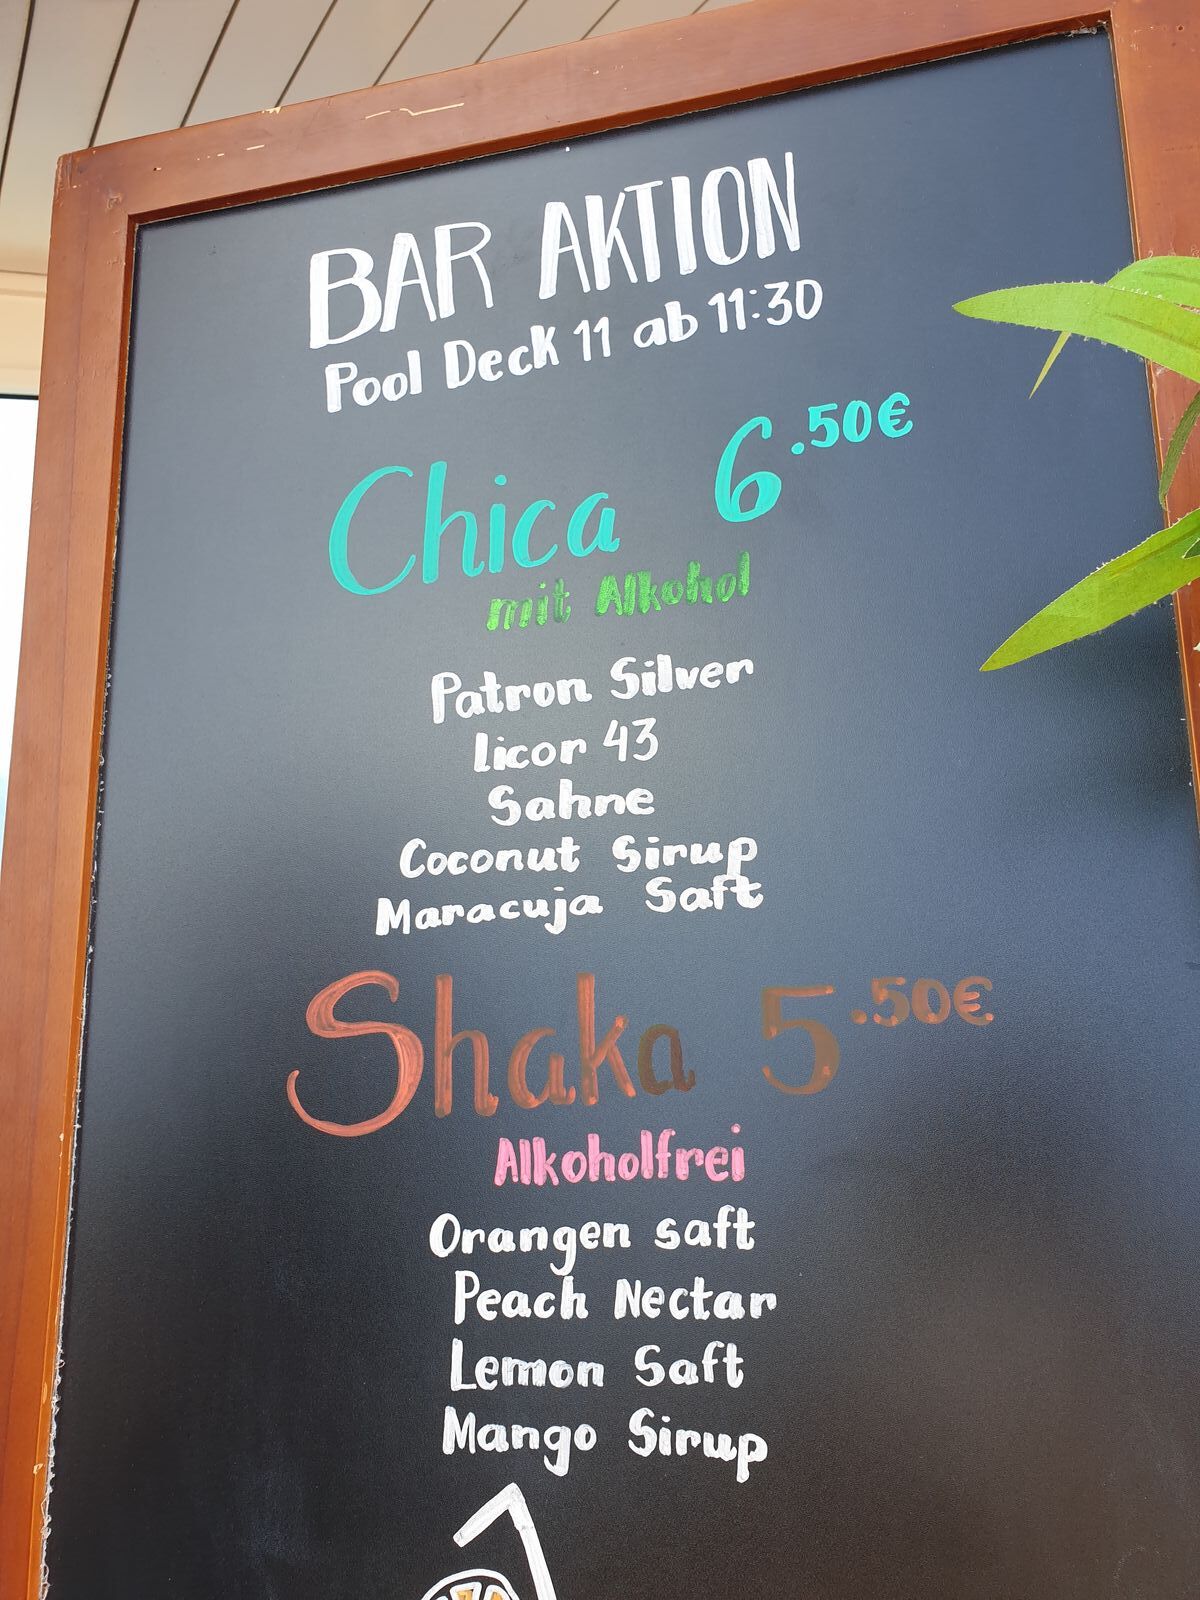 BAR AKTION
Pool Deck 11 ab 11:30
Chica 6.50€
mit Alkohol
Patron Silver
licor 43
Sahne
Coconut Sirup
Maracuja Saft
Shaka 5.50€
Alkoholfrei
Orangen saft
Peach Nectar
Lemon Saft
Mango Sirup